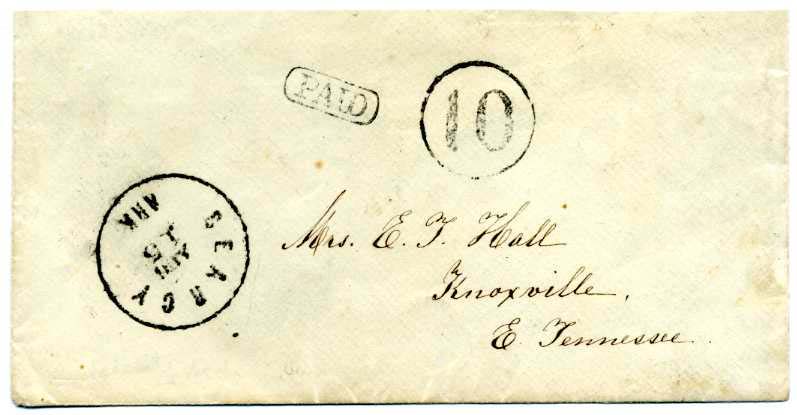 PAID
10
SEARCY
ARK
15
Mrs. E. T. Hall
Knoxville,
E. Tennessee.